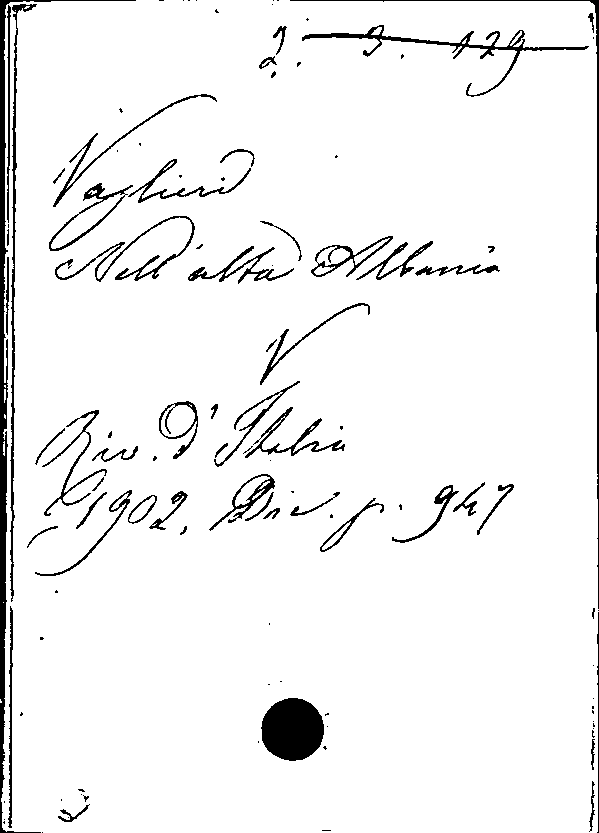 2. 3. 129
Vaglieri
Nell'alta Albania
V
Riv. d'Italia
1902, Dic. p. 947